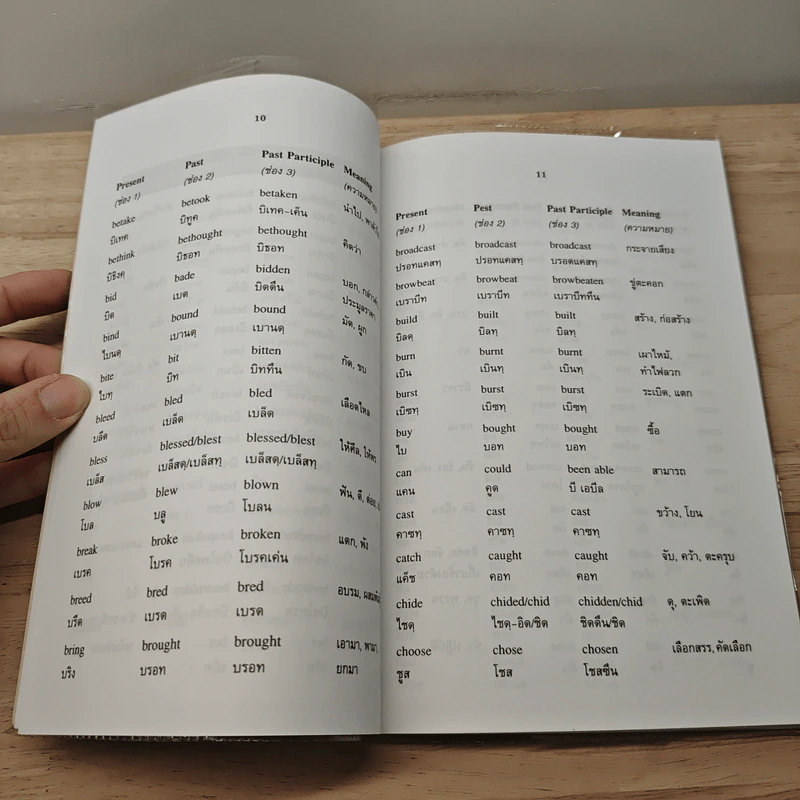 10
Present Past Past Participle Meaning
(ช่อง 1) (ช่อง 2) (ช่อง 3) (ความหมาย)
betake betook betaken นำไป,
บิเทค บิทูค บิเทค-เค็น
bethink bethought bethought คิดว่า
บิธิงคฺ บิธอท บิธอท
bid bade bidden บอก,
บิด เบด บิดดึน ประมูลราคา
bind bound bound มัด, ผูก
ไบนดฺ เบานดฺ เบานดฺ
bite bit bitten กัด, ขบ
ไบทฺ บิท บิททึน
bleed bled bled เลือดไหล
บลีด เบล็ด เบล็ด
bless blessed/blest blessed/blest ให้ศีล, ให้พร
เบล็ส เบล็สดฺ/เบล็สทฺ เบล็สดฺ/เบล็สทฺ
blow blew blown พัน, ตี,
โบล บลู โบลน
break broke broken แตก, พัง
เบรค โบรค โบรคเค่น
breed bred bred อบรม, ผสมพันธุ์
บรีด เบรด เบรด
bring brought brought เอามา, พามา,
บริง บรอท บรอท ยกมา
11
Present Pest Past Participle Meaning
(ช่อง 1) (ช่อง 2) (ช่อง 3) (ความหมาย)
broadcast broadcast broadcast กระจายเสียง
ปรอทแคสทฺ ปรอทแคสทฺ บรอดแคสทฺ
browbeat browbeat browbeaten ขู่ตะคอก
เบราบีท เบราบีท เบราบีททึน
build built built สร้าง, ก่อสร้าง
บิลดฺ บิลทฺ บิลทฺ
burn burnt burnt เผาไหม้,
เบิน เบินทฺ เบินทฺ ทำไฟลวก
burst burst burst ระเบิด, แตก
เบิซทฺ เบิซทฺ เบิซทฺ
buy bought bought ซื้อ
ไบ บอท บอท
can could been able สามารถ
แคน คูด บี เอเบิล
cast cast cast ขว้าง, โยน
คาซทฺ คาซทฺ คาซทฺ
catch caught caught จับ, คว้า, ตะครุบ
แค็ช คอท คอท
chide chided/chid chidden/chid ดุ, ตะเพิด
ไชดฺ ไชดฺ-อิด/ชิด ชิดดึน/ชิด
choose chose chosen เลือกสรร, คัดเลือก
ชูส โชส โชสซึน